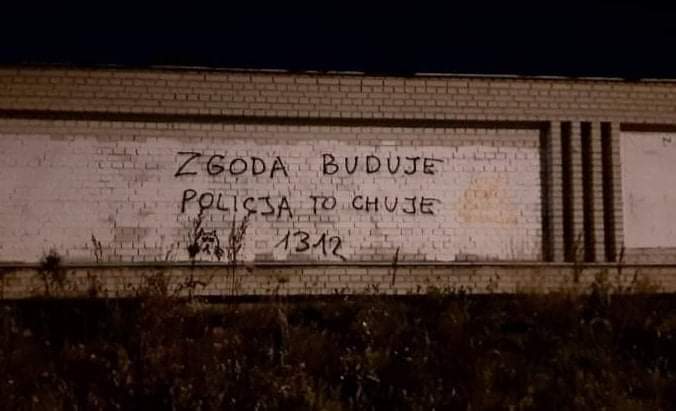 ZGODA BUDUJE
POLICJA TO CHUJE
1312